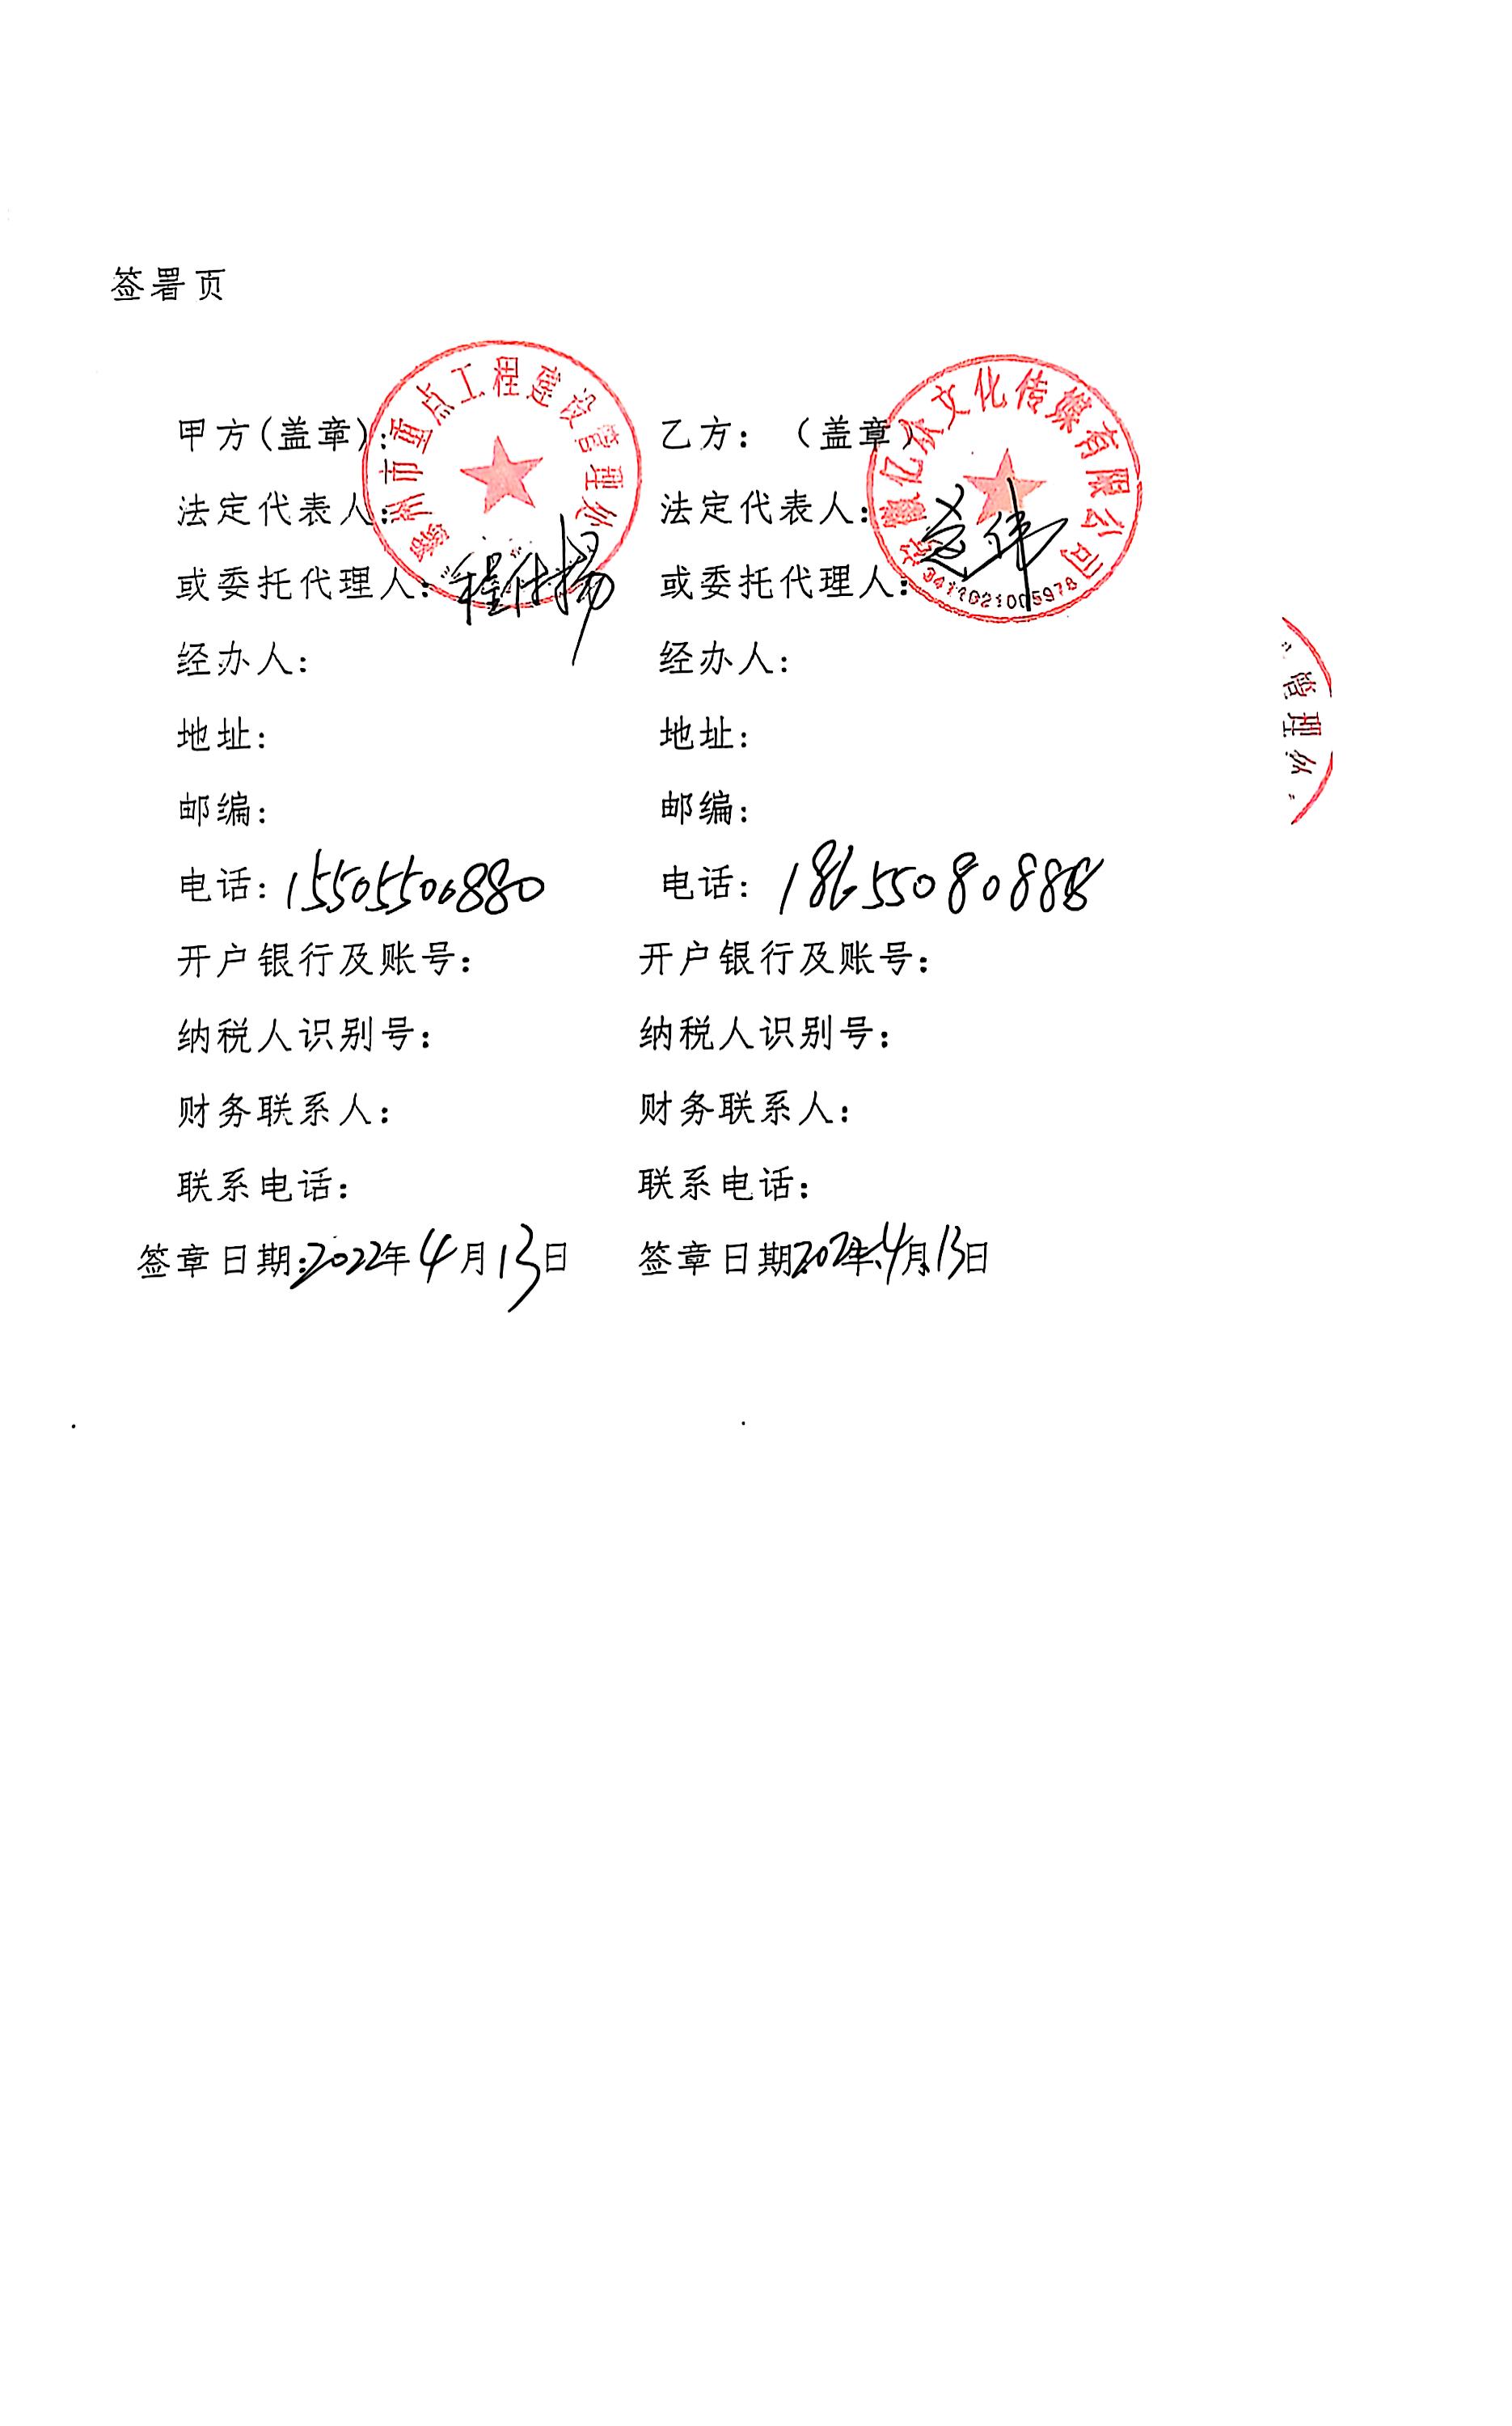 签署页
滁州市重点工程建设管理处
安徽亿众文化传媒有限公司
3411021005978
甲方(盖章): 乙方：（盖章）
法定代表人: 法定代表人:
或委托代理人: 程仕扬 或委托代理人:
经办人: 经办人:
管理处
地址: 地址:
邮编: 邮编:
电话: 15505500880 电话: 18655080888
开户银行及账号: 开户银行及账号:
纳税人识别号: 纳税人识别号:
财务联系人: 财务联系人:
联系电话: 联系电话:
签章日期:2022年4月13日 签章日期:2022年4月13日